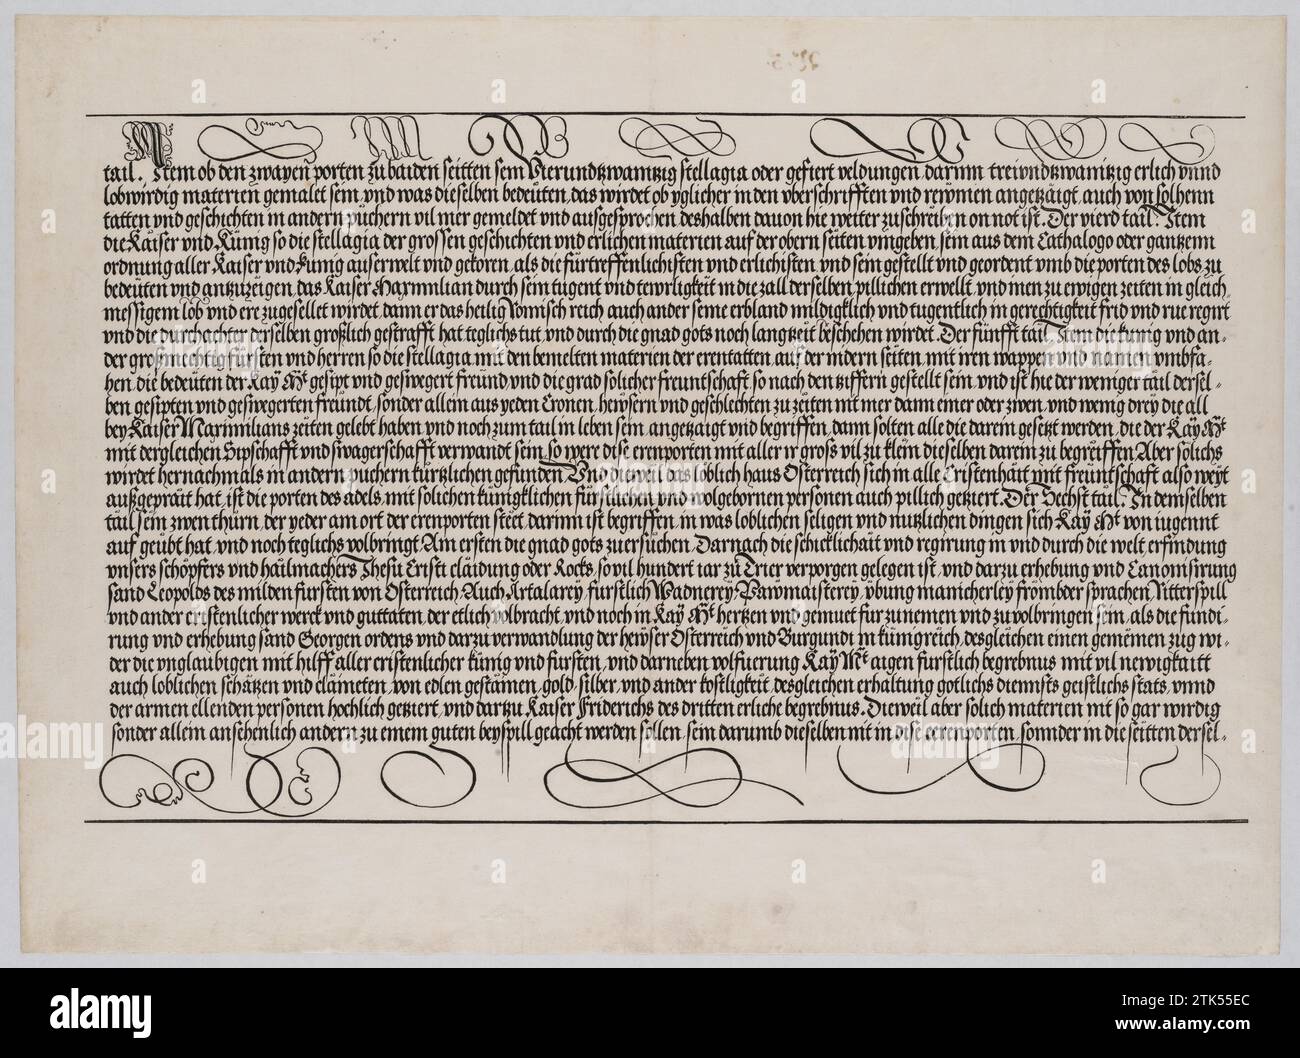 tail. Item ob den zwayen porten zu baiden seitten sein Vierundtzwaintzig stellagia oder gefiert veldungen darinn treiundtzwaintzig erlich vnnd
lobwirdig materien gemalet sein, vnd was dieselben bedeüten, das wirdet ob yglicher in den überschrifften vnd reymen angetzaigt, auch von solhenn
tatten vnd geschichten in andern püchern vil mer gemeldet vnd ausgesprochen, deshalben dauon hie weiter zuschreiben on not ist. Der vierd tail. Item
die Kaiser vnd Künig so die stellagia der grossen geschichten vnd erlichen materien auf der obern seiten vmgeben, sein aus dem Cathalogo oder gantzenn
ordnung aller Kaiser vnd Kunig auserwelt vnd gekoren, als die fürtreffenlichisten vnd erlichisten vnd sein gestellt vnd geordent vmb die porten des lobs zu
bedeüten vnd antzuzeigen, das Kaiser Maxmilian durch sein tugent vnd tewrligkeit in die zall derselben pillichen erwellt, vnd men zu ewigen zeiten in gleich
messigem lob vnd ere zugesellet wirdet, dann er das heilig Römisch reich auch ander seine erbland mildigklich vnd tugentlich in gerechtigkeit frid vnd rue regirt
vnd die durchachter derselben großlich gestrafft hat teglichs tut, vnd durch die gnad gots noch langtzeit beschehen wirdet. Der fünfft tail. Item die kunig vnd an-
der großmechtig fürsten vnd herren so die stellagia mit den bemelten materien der erentatten auf der nidern seiten, mit iren wappen vnd namen vmbfa-
hen, die bedeüten der Kay. Mt. gesipt vnd geswegert freünd, vnd die grad solicher freuntschaft so nach den tziffern gestellt sein, vnd ist hie der weniger tail dersel-
ben gesipten vnd geswegerten freundt, sonder allein aus yeden Cronen, heysern vnd geschlechten zu zeiten nit mer dann einer oder zwen, vnd wenig drey die all
bey Kaiser Maximilians zeiten gelebt haben vnd noch zum tail in leben sein, angetzaigt vnd begriffen, dann solten alle die darein gesetzt werden, die der Kay. Mt.
mit dergleichen Sipschafft vnd swagerschafft verwandt sein, so were dise erenporten mit aller ir groß vil zu klein dieselben darein zu begreiffen Aber solichs
wirdet hernachmals in andern puchern kürtzlichen gefunden Vnd dieweil das löblich haus Osterreich sich in alle Cristenhait mit freuntschaft also weyt
außgeprait hat, ist die porten des adels, mit solichen künigklichen fürstlichen vnd wolgebornen personen auch pillich getziert. Der Sechst tail. In demselben
tail sein zwen thürn, der yeder am ort der erenporten steet, darinn ist begriffen, in was loblichen seligen vnd nutzlichen dingen sich Kay. Mt. von iugennt
auf geübt hat, vnd noch teglichs volbringt Am ersten die gnad gots zuersuchen, Darnach die schicklichait vnd regirung in vnd durch die welt, erfindung
vnsers schöpfers vnd hailmachers Jhesu Cristi claidung oder Rocks, so vil hundert iar zu Trier verporgen gelegen ist, vnd darzu erhebung vnd Canonisirung
sand Leopolds des milden fursten von Osterreich, Auch Artalarey, furstlich Wadnerey, Pawmaisterey, vbung manicherley frömbder sprachen, Ritterspill
vnd ander cristenlicher werck vnd guttaten, der etlich volbracht, vnd noch in Kay. Mt. hertzen vnd gemuet fur zunemen vnd zu volbringen sein, als die fundi-
rung vnd erhebung sand Georgen ordens vnd darzu verwandlung der heyser Osterreich vnd Burgundi in kunigreich, desgleichen einen gemainen zug wi-
der die vnglaubigen mit hilff aller cristenlicher künig vnd fursten, vnd darneben volfuerung Kay. Mt. aigen furstlich begrebnus mit vil newigkaitt
auch loblichen schätzen vnd claineten, von edlen gestainen, gold, silber, vnd ander kostligkeit, desgleichen erhaltung gotlichs diennsts geistlichs stats, vnnd
der armen ellenden personen hochlich getziert, vnd dartzu Kaiser Friderichs des dritten erliche begrebnus. Dieweil aber solich materien nit so gar wirdig
sonder allein ansehenlich andern zu einem guten beyspill geacht werden sollen, sein darumb dieselben nit in dise eerenporten, sonnder in die seitten dersel-
alamy
Image ID: 2TK55EC
www.alamy.com